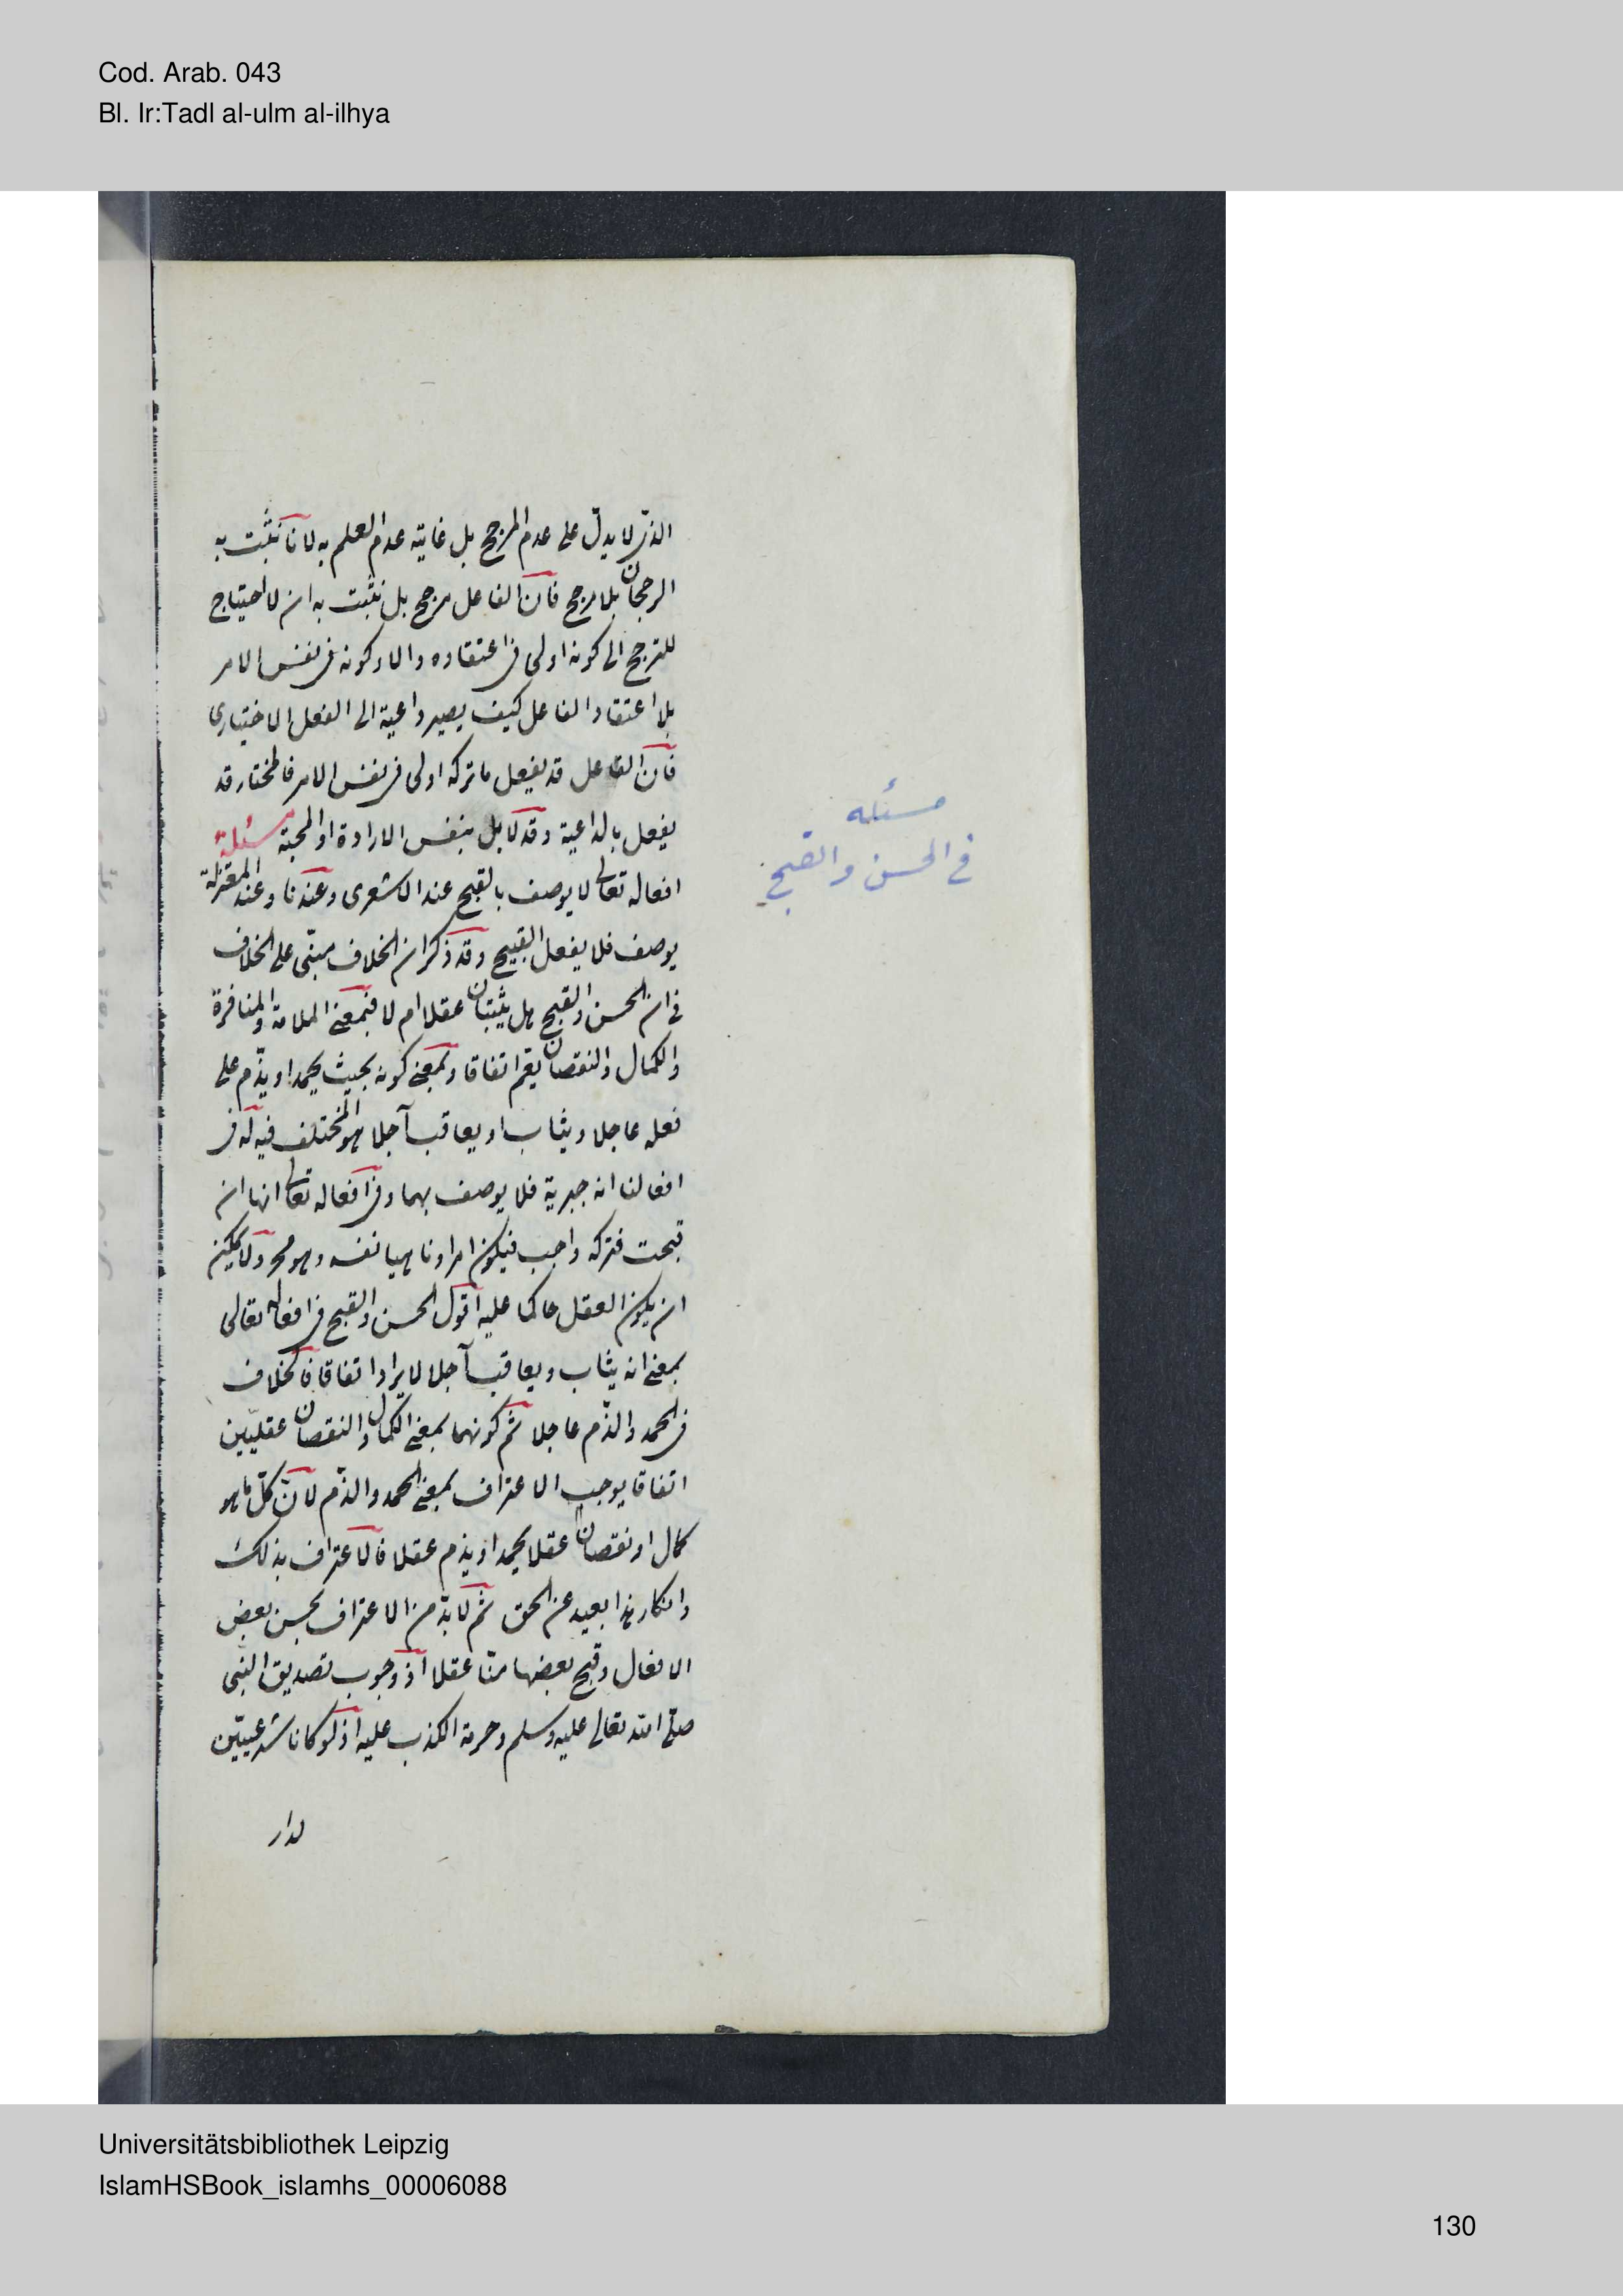 Cod. Arab. 043
Bl. Ir:Tadl al-ulm al-ilhya
الذى لا يدلّ على عدم المرجح بل غايته عدم العلم به لانا نثبت به
الرجحان بلا مرجح فان الفاعل مرجح بل نثبت به ان لا احتياج
للترجح الى كونه اولى فى اعتقاده والا وكونه فى نفس الامر
بلا اعتقاد الفاعل كيف يصير داعية الى الفعل الاختيارى
فان الفاعل قد يفعل ما تركه اولى فى نفس الامر فالمختار قد
يفعل بالداعية وقد لا بل بنفس الارادة او المحبة مسئلة
افعاله تعالى لا يوصف بالقبح عند الاشعرى وعندنا وعند المعتزلة
يوصف فلا يفعل القبيح وقد ذكر ان الخلاف مبنّى على الخلاف
فى ان الحسن والقبح هل يثبتان عقلا ام لا فبمعنى الملامة والمنافرة
والكمال والنقصان يعم اتفاقا وبمعنى كونه بحيث يحمد او يذّم على
فعله عاجلا ويثاب او يعاقب آجلا هو المختلف فيه له فى
افعالنا انه جبرية فلا يوصف بهما وفى افعاله تعالى انها ان
قبحت فتركه واجب فيكون امرا وناهيا نفسه وهو مح ولا يمكن
ان يكون العقل حاكما عليه اقول الحسن والقبح فى افعاله تعالى
بمعنى انه يثاب ويعاقب آجلا لا يراد اتفاقا فالخلاف
فى الحمد والذّم عاجلا ثم كونهما بمعنى الكمال والنقصان عقليّين
اتفاقا يوجب الاعتراف بمعنى الحمد والذّم لان كلّ ما هو
كمال او نقصان عقلا يحمد او يذم عقلا فالاعتراف بذلك
وانكار هذا بعيد عن الحق ثم لا بدّ من الاعتراف بحسن بعض
الافعال وقبح بعضها منّا عقلا اذ وجوب تصديق النبى
صلّى الله تعالى عليه وسلم وحرمة الكذب عليه اذ لو كانا شرعيّين
لدار
مسئله
فى الحسن والقبح
Universitätsbibliothek Leipzig
IslamHSBook_islamhs_00006088
130